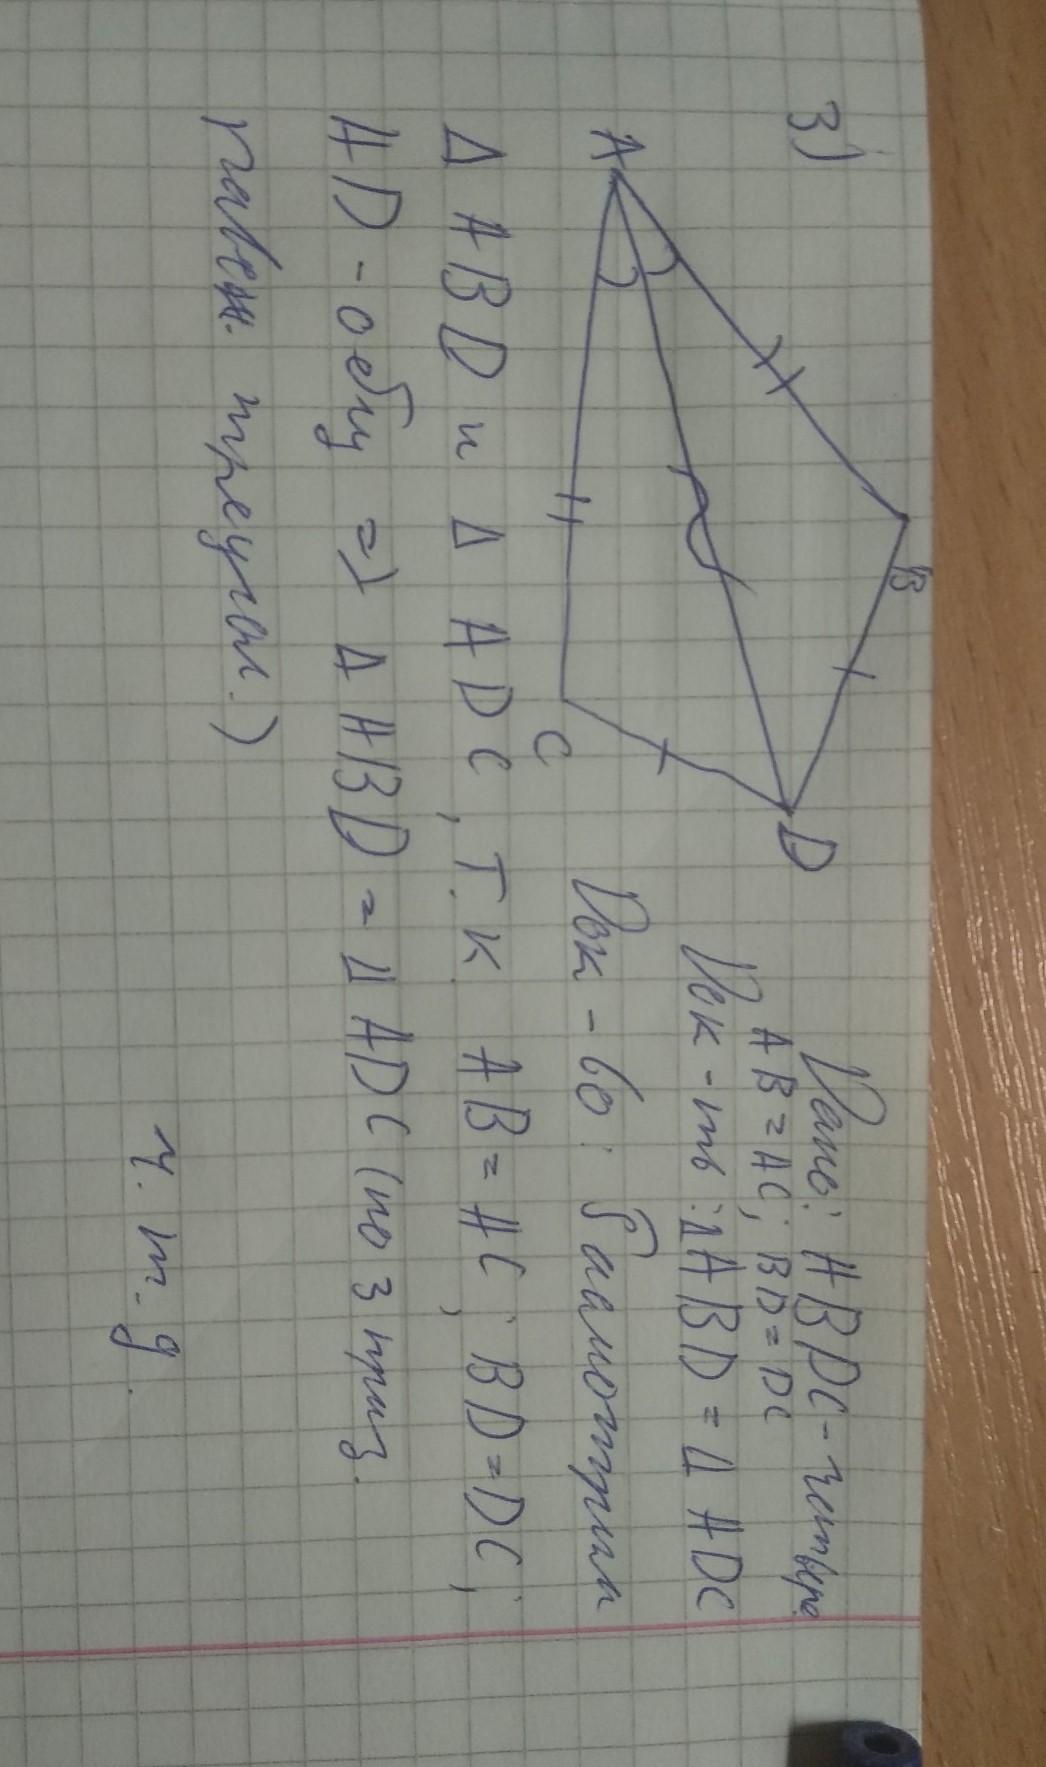 3)
A
B
C
D
Дано: ABDC - четыре.
AB = AC; BD = DC
Док - ть: Δ ABD = Δ ADC
Док - во: Рассмотрим
Δ ABD и Δ ADC, т.к. AB = AC, BD = DC,
AD - общ => Δ ABD = Δ ADC (по 3 приз.
равен. треугол.)
ч. т. д.